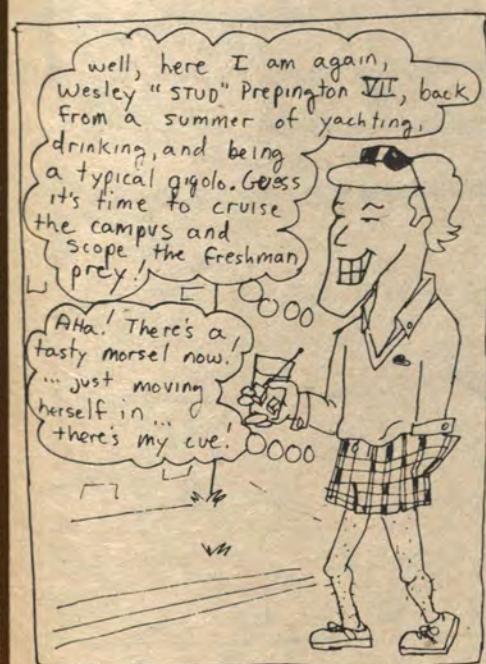 well, here I am again,
Wesley "STUD" Prepington VII, back
from a summer of yachting,
drinking, and being
a typical gigolo. Guess
it's time to cruise
the campus and
scope the freshman
prey!
AHa! There's a
tasty morsel now!
... just moving
herself in ...
there's my cue!